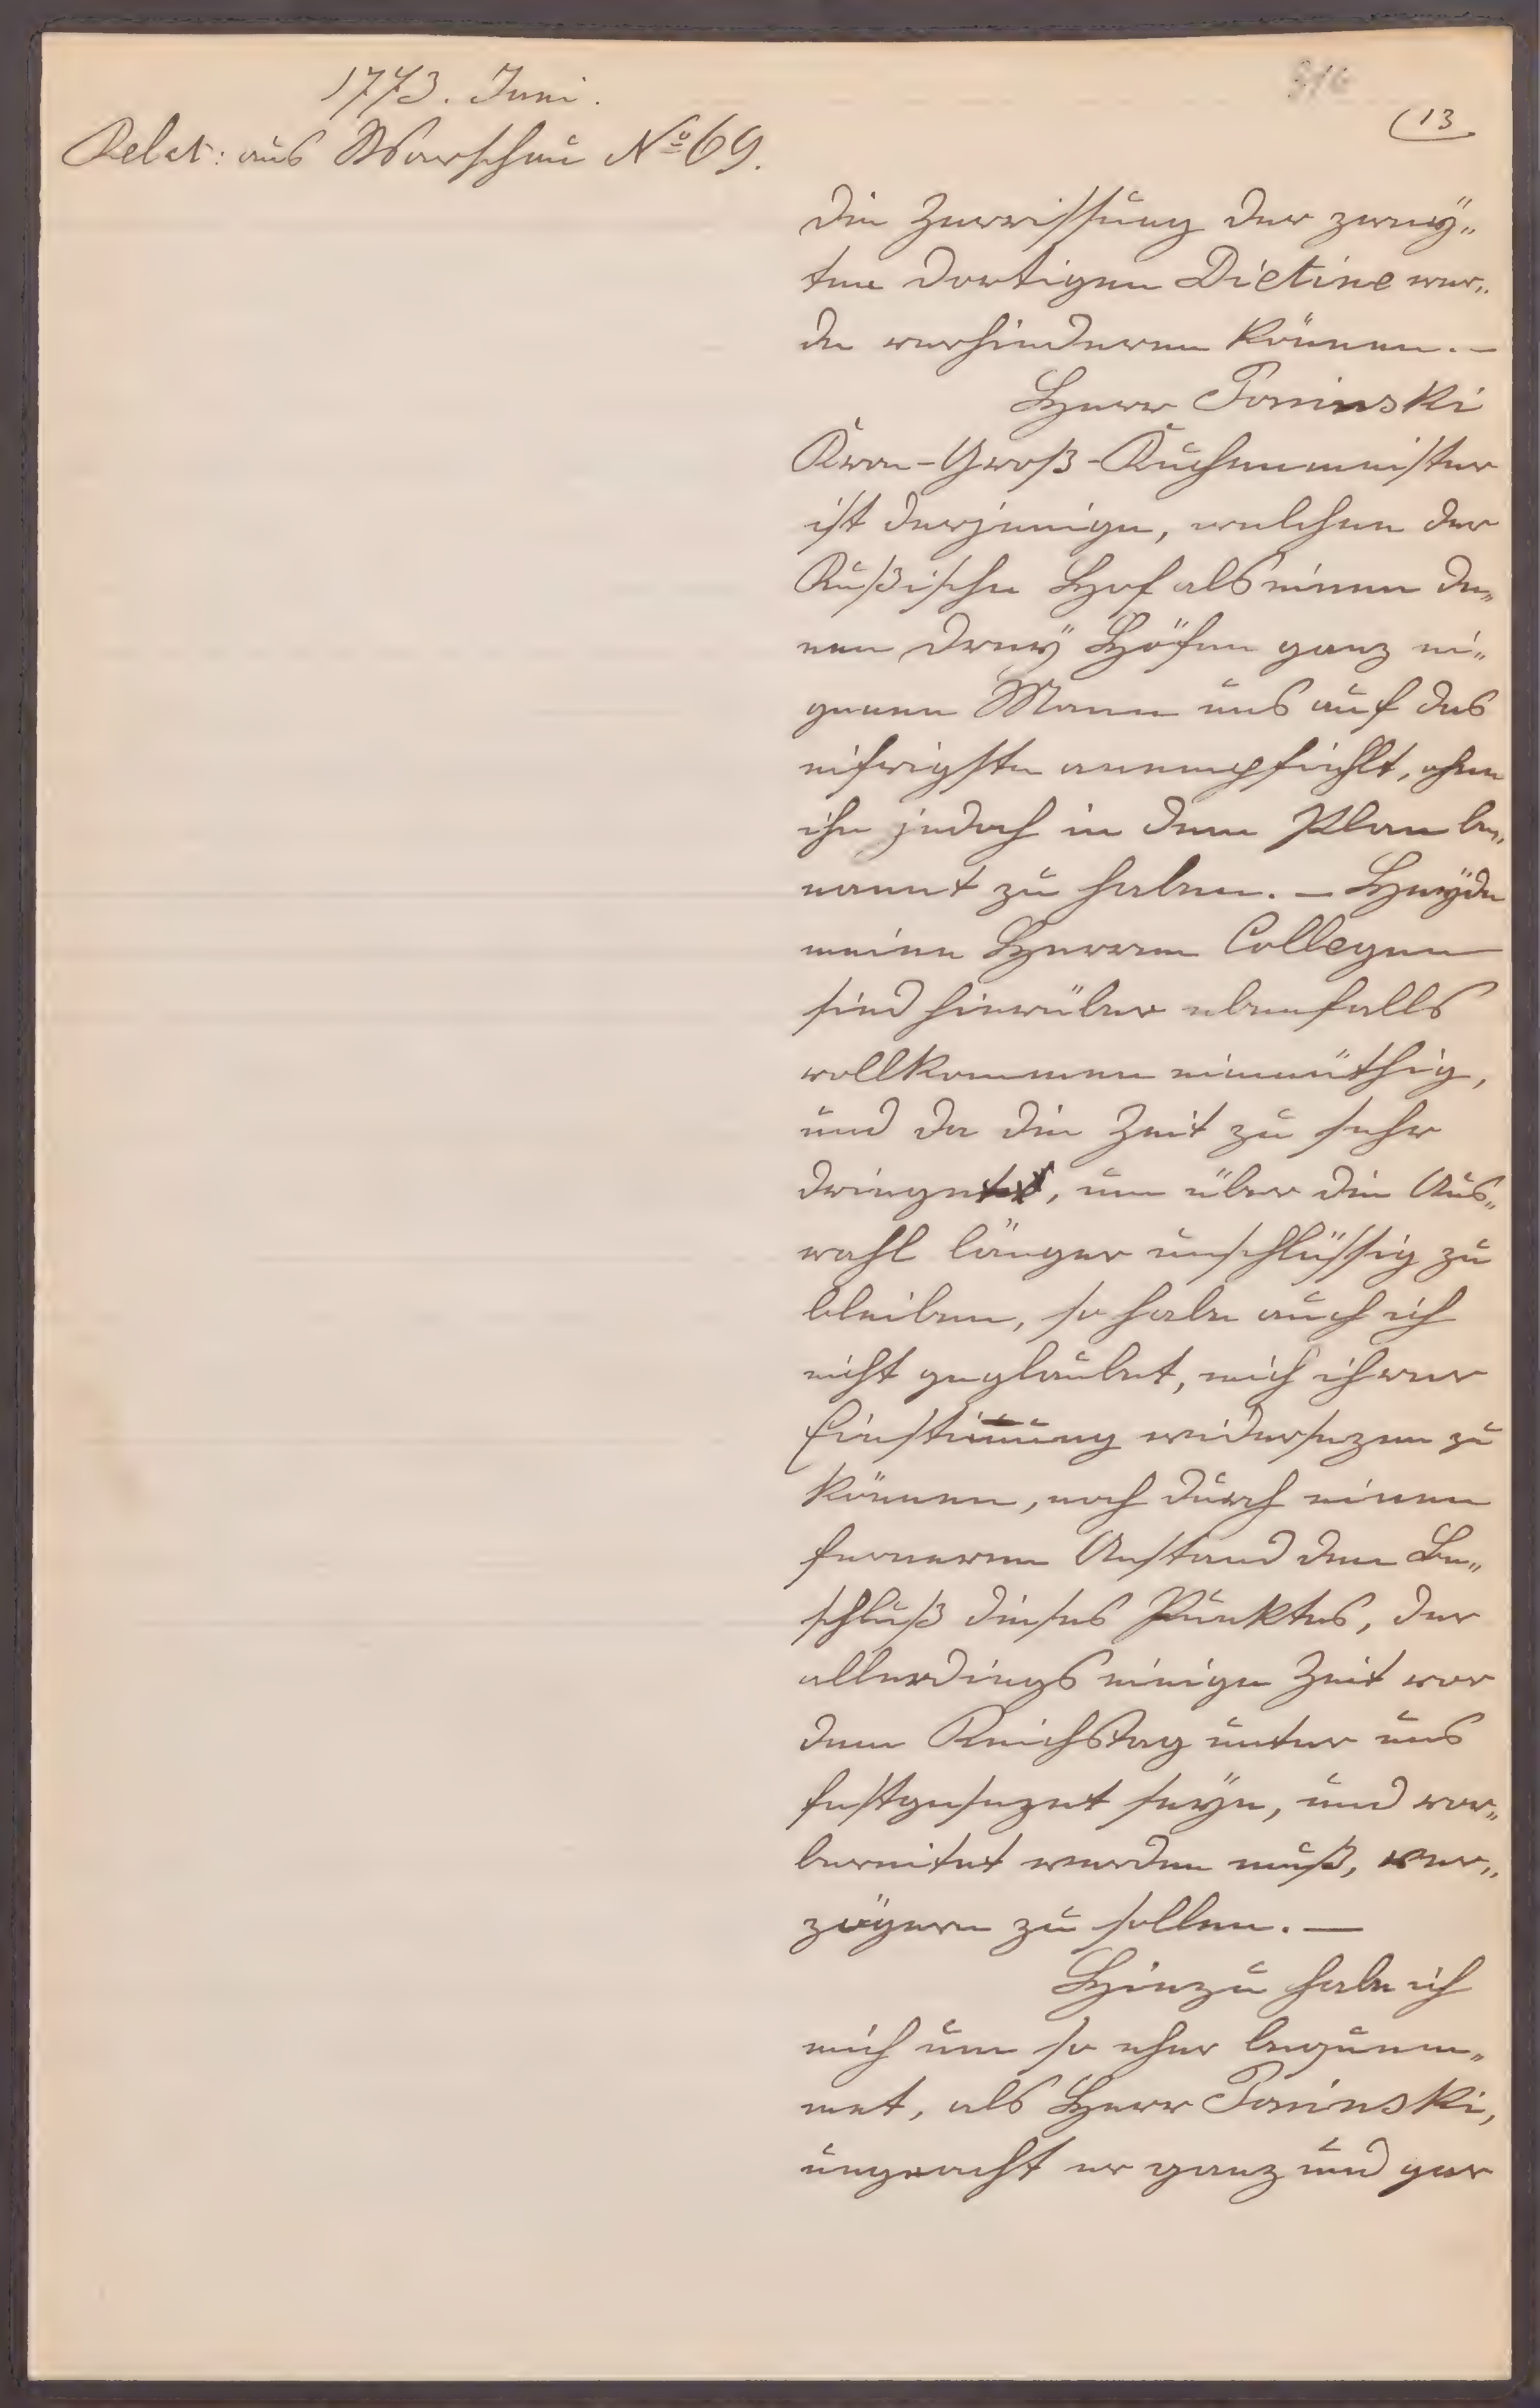 1773. Juni.
Relat: aus Warschau No 69.
316
(13
die Zerreissung der zwey„
ten dortigen Dietine wer„
de verhinderen können. –
Herr Poninski
Kron-Groß-Kuchenmeister
ist derjenige, welchen der
Rußische Hof als einen de„
nen drey Höfen ganz ei„
genen Mann uns auf das
eifrigste anempfiehlt, ohne
ihn jedoch in dem Plan be„
nannt zu haben. – Heyde
meine Herren Collegen
sind hierüber ebenfalls
vollkommen einmüthig,
und da die Zeit zu sehr
dringet, um über die Aus„
wahl länger unschlüssig zu
bleiben, so habe auch ich
nicht geglaubet, mich ihrer
Einstimung widersezen zu
können, noch durch einen
ferneren Anstand den Be„
schluß dieses Punktes, der
allerdings einige Zeit vor
dem Reichstag unter uns
festgesezet seyn, und vor„
bereitet werden muß, ver„
zögern zu sollen. –
Hiezu habe ich
mich um so eher bequem„
met, als Herr Poninski,
ungeacht er ganz und gar